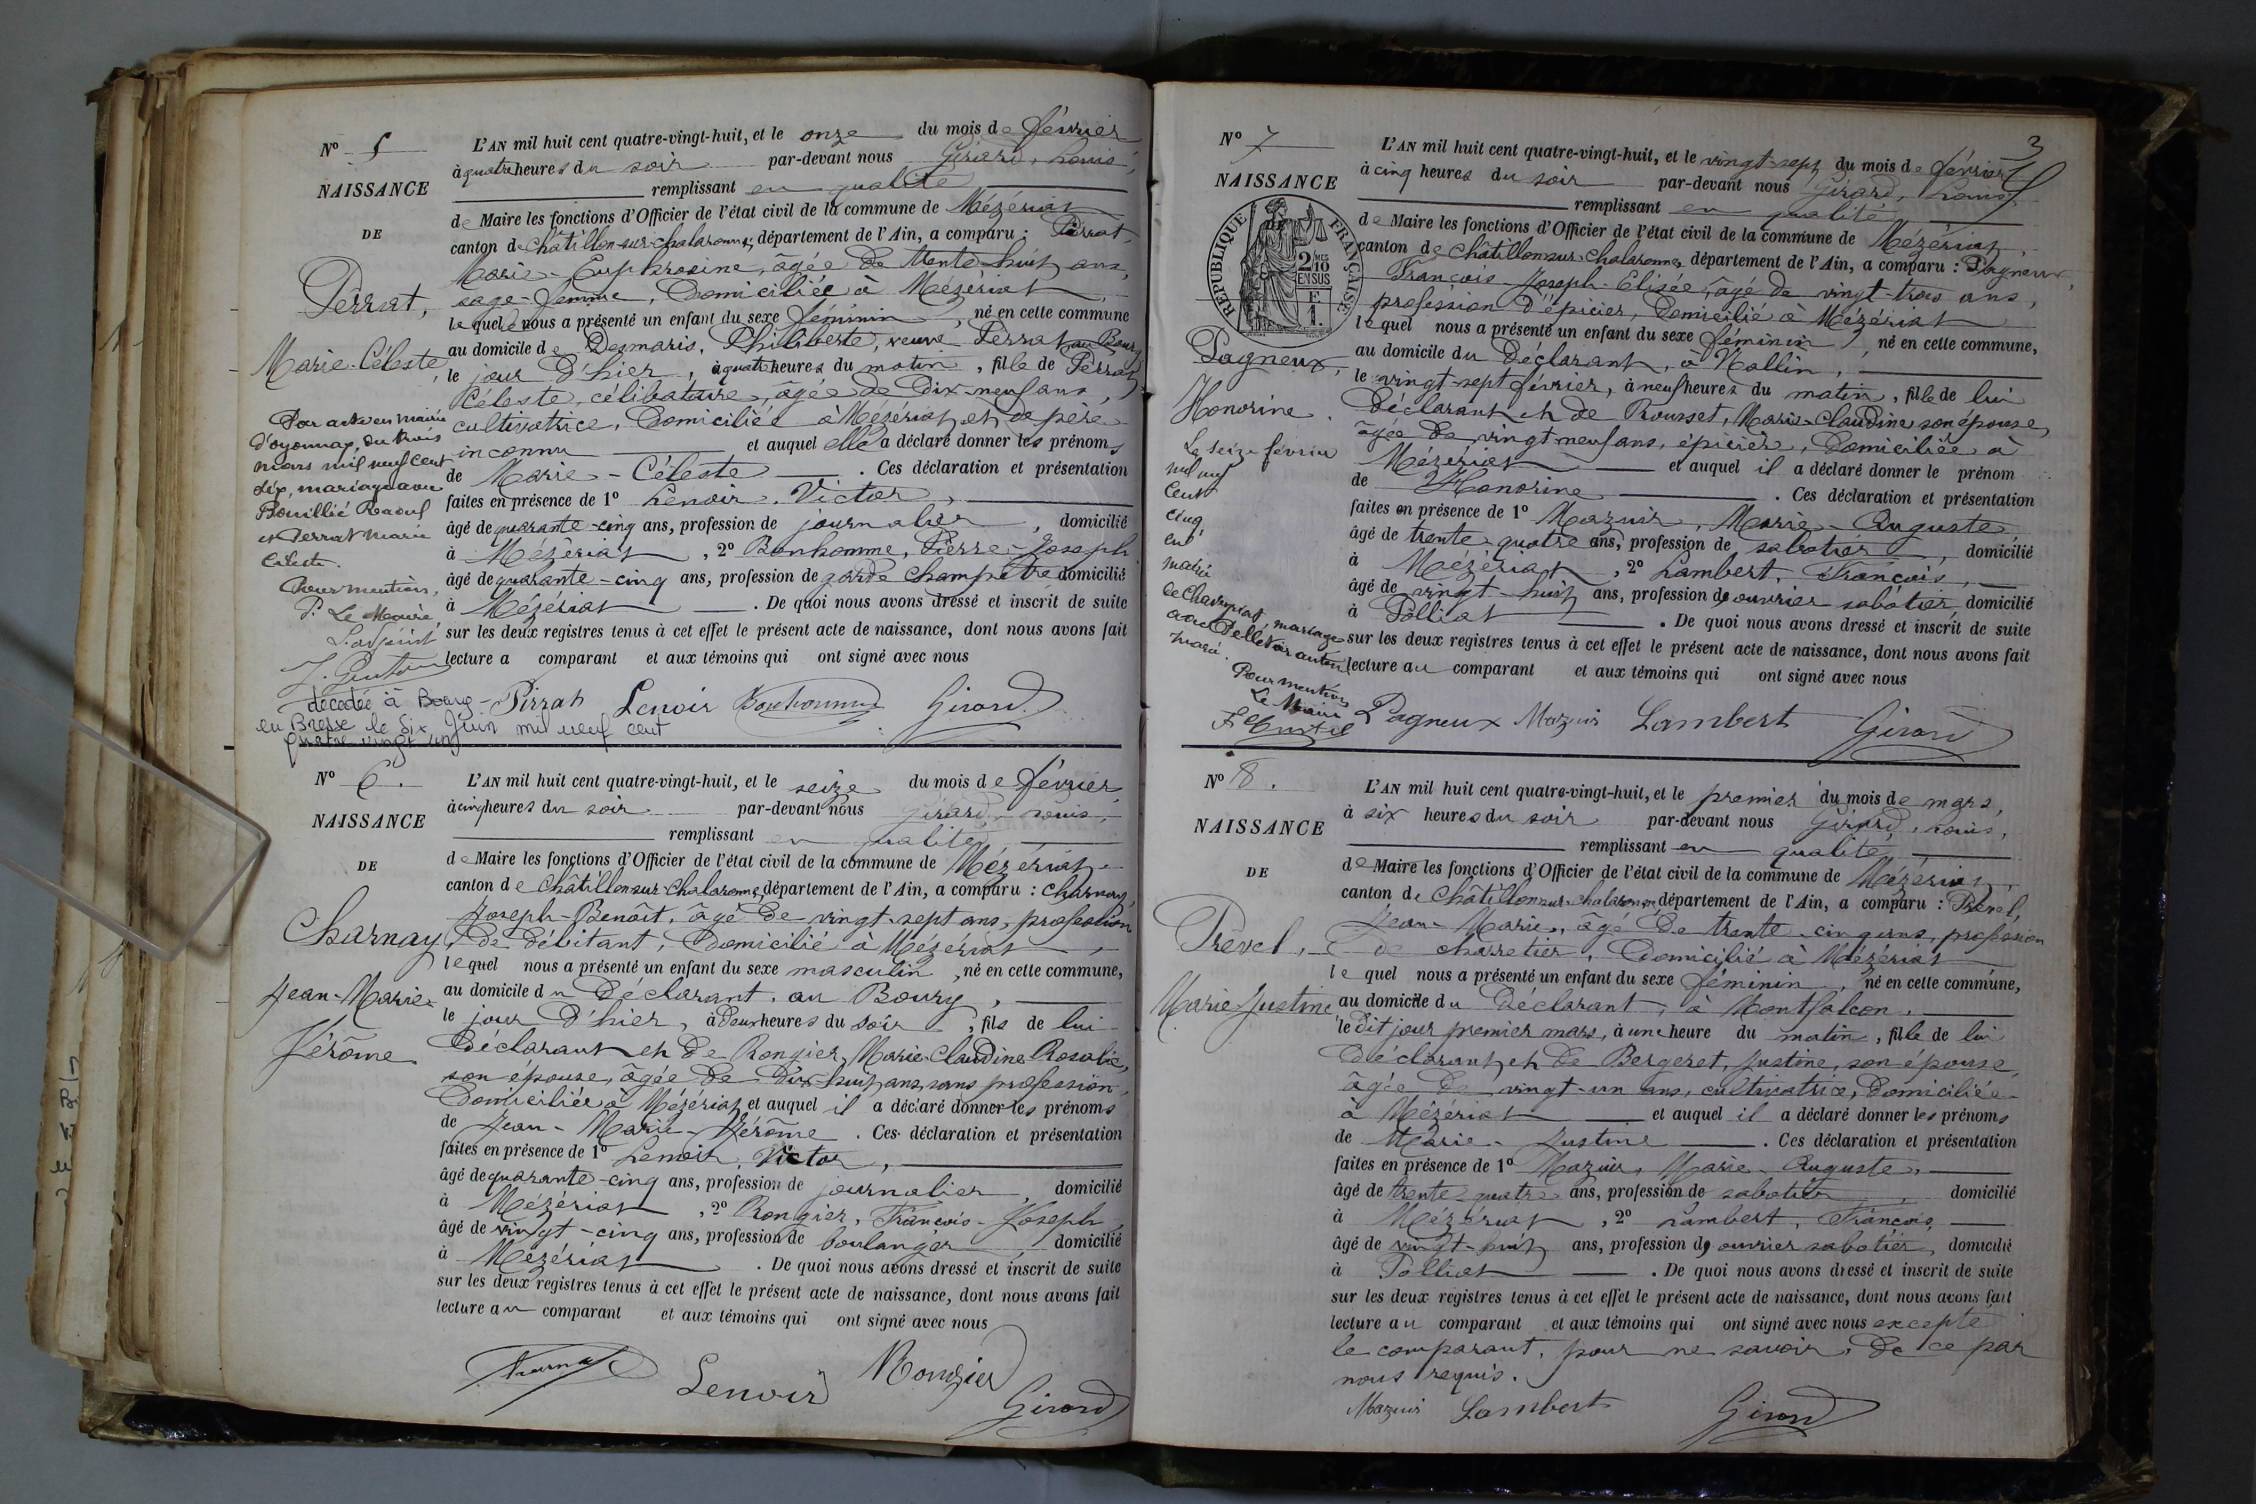 N° 5
NAISSANCE
DE
Perrat,
Marie-Céleste
Par acte en mairie
d'oyonnax, du trois
mars mil neuf cent
dix, mariage avec
Bouillié Raoul
et Perrat Marie
Céleste.
Pour mention,
P. Le Maire,
L'adjoint
décédée à Bourg-
en Bresse le six Juin mil neuf cent
quatre vingt un
L'AN mil huit cent quatre-vingt-huit, et le onze du mois de février
à quatre heures du soir par-devant nous Girard, Louis,
remplissant en qualité
de Maire les fonctions d'Officier de l'état civil de la commune de Mézériat
canton de Châtillon-sur-Chalaronne, département de l'Ain, a comparu : Perrat,
Marie-Euphrosine, âgée de trente-huit ans,
sage-femme, domiciliée à Mézériat
lequel nous a présenté un enfant du sexe féminin, né en cette commune
au domicile de Desmaris, Philiberte, veuve Perrat, au Bourg
le jour d'hier, à quatre heures du matin, fille de Perrat
Céleste, célibataire, âgée de dix-neuf ans,
cultivatrice, domiciliée à Mézériat et de père
inconnu et auquel elle a déclaré donner les prénoms
de Marie-Céleste. Ces déclaration et présentation
faites en présence de 1° Lenoir, Victor,
âgé de quarante-cinq ans, profession de journalier, domicilié
à Mézériat, 2° Bonhomme, Pierre-Joseph
âgé de quarante-cinq ans, profession de garde champêtre domicilié
à Mézériat. De quoi nous avons dressé et inscrit de suite
sur les deux registres tenus à cet effet le présent acte de naissance, dont nous avons fait
lecture a comparant et aux témoins qui ont signé avec nous
Pirrat Lenoir Bonhomme Girard
N° 6.
NAISSANCE
DE
Charnay
Jean-Marie-
Jérôme
L'AN mil huit cent quatre-vingt-huit, et le seize du mois de février,
à cinq heures du soir par-devant nous Girard, Louis,
remplissant en qualité
de Maire les fonctions d'Officier de l'état civil de la commune de Mézériat
canton de Châtillon-sur-Chalaronne, département de l'Ain, a comparu : Charnay,
Joseph-Benoît, âgé de vingt-sept ans, profession
de débitant, domicilié à Mézériat,
lequel nous a présenté un enfant du sexe masculin, né en cette commune,
au domicile du déclarant, au Bourg,
le jour d'hier, à deux heures du soir, fils de lui
déclarant et de Rongier, Marie-Claudine Rosalie,
son épouse, âgée de dix-huit ans, sans profession,
domiciliée à Mézériat, et auquel il a déclaré donner les prénoms
de Jean-Marie-Jérôme. Ces déclaration et présentation
faites en présence de 1° Lenoir, Victor,
âgé de quarante-cinq ans, profession de journalier, domicilié
à Mézériat, 2° Rongier, François-Joseph
âgé de vingt-cinq ans, profession de boulanger domicilié
à Mézériat. De quoi nous avons dressé et inscrit de suite
sur les deux registres tenus à cet effet le présent acte de naissance, dont nous avons fait
lecture au comparant et aux témoins qui ont signé avec nous
Lenoir Rongier
Girard
3
N° 7
NAISSANCE
REPUBLIQUE FRANÇAISE
2 MES 10
EN SUS
F
1.
Pagneux,
Honorine.
Le seize février
mil neuf
cent
cinq,
en
mairie
de Chaveyriat, mariage
avec Pelletier antoine
marie.
Pour mention
Le Maire
L'AN mil huit cent quatre-vingt-huit, et le vingt-sept du mois de février
à cinq heures du soir par-devant nous Girard, Louis,
remplissant en qualité
de Maire les fonctions d'Officier de l'état civil de la commune de Mézériat,
canton de Châtillon-sur-Chalaronne, département de l'Ain, a comparu : Pagneux,
François-Joseph-Elisée, âgé de vingt-trois ans,
profession d'épicier, domicilié à Mézériat
lequel nous a présenté un enfant du sexe féminin, né en cette commune,
au domicile du déclarant, à Nallin,
le vingt-sept février, à neuf heures du matin, fille de lui
déclarant et de Rousset, Marie-Claudine son épouse,
âgée de vingt-neuf ans, épicière, domiciliée à
Mézériat et auquel il a déclaré donner le prénom
de Honorine. Ces déclaration et présentation
faites en présence de 1° Mazuir, Marie-Auguste
âgé de trente-quatre ans, profession de sabotier, domicilié
à Mézériat, 2° Lambert, François,
âgé de vingt-huit ans, profession de ouvrier sabotier, domicilié
à Polliat. De quoi nous avons dressé et inscrit de suite
sur les deux registres tenus à cet effet le présent acte de naissance, dont nous avons fait
lecture au comparant et aux témoins qui ont signé avec nous
Pagneux Mazuir Lambert Girard
N° 8.
NAISSANCE
DE
Prével,
Marie-Justine
L'AN mil huit cent quatre-vingt-huit, et le premier du mois de mars,
à six heures du soir par-devant nous Girard, Louis,
remplissant en qualité
de Maire les fonctions d'Officier de l'état civil de la commune de Mézériat,
canton de Châtillon-sur-Chalaronne, département de l'Ain, a comparu : Prével,
Jean-Marie, âgé de trente-cinq ans, profession
de charretier, domicilié à Mézériat
lequel nous a présenté un enfant du sexe féminin, né en cette commune,
au domicile du déclarant, à Montfalcon,
le dit jour premier mars, à une heure du matin, fille de lui
déclarant, et de Bergeret, Justine, son épouse,
âgée de vingt-un ans, cultivatrice, domiciliée
à Mézériat et auquel il a déclaré donner les prénoms
de Marie-Justine. Ces déclaration et présentation
faites en présence de 1° Mazuir, Marie-Auguste,
âgé de trente-quatre ans, profession de sabotier, domicilié
à Mézériat, 2° Lambert, François,
âgé de vingt-huit ans, profession de ouvrier sabotier, domicilié
à Polliat. De quoi nous avons dressé et inscrit de suite
sur les deux registres tenus à cet effet le présent acte de naissance, dont nous avons fait
lecture au comparant et aux témoins qui ont signé avec nous excepté
le comparant, pour ne savoir, de ce par
nous requis.
Mazuir Lambert Girard